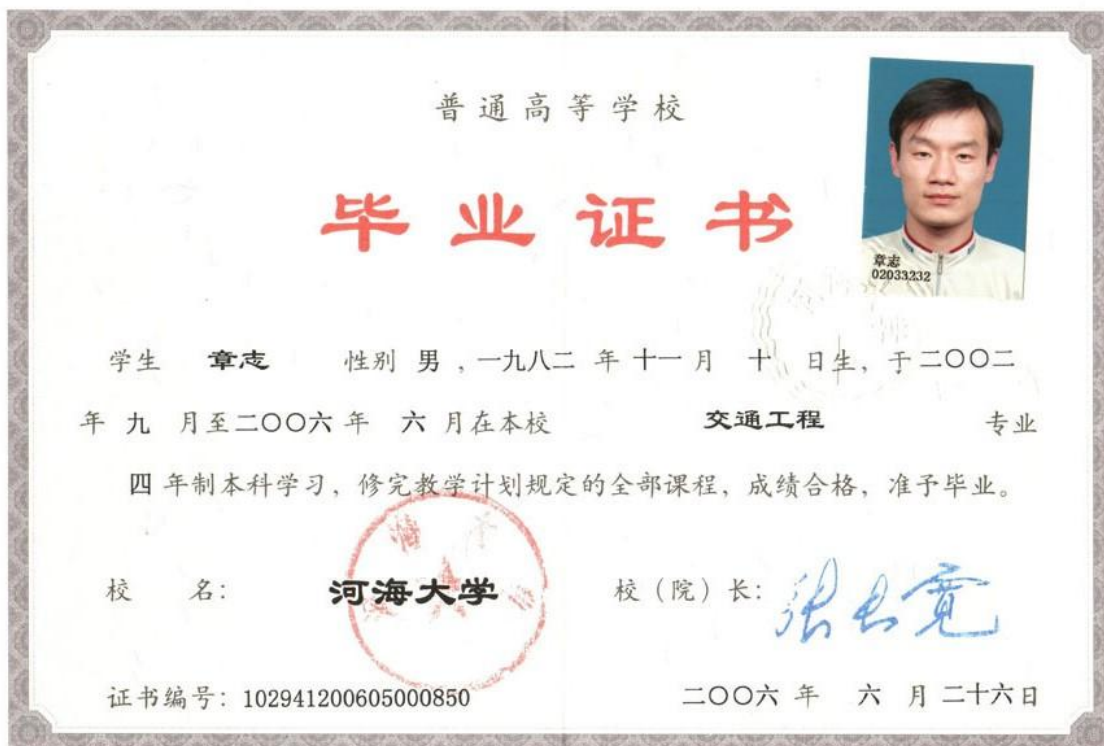 普通高等学校
毕业证书
章志
02033232
学生 章志 性别 男 ，一九八二 年 十一 月 十 日生，于 二〇〇二
年 九 月至二〇〇六 年 六 月在本校 交通工程 专业
四 年制本科学习，修完教学计划规定的全部课程，成绩合格，准予毕业。
校 名： 河海大学 校（院）长： 张长宽
证书编号：102941200605000850 二〇〇六 年 六 月 二十六日